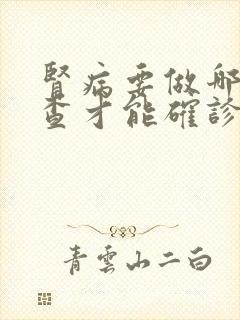 腎病要做哪
查才能確診
青雲山二白